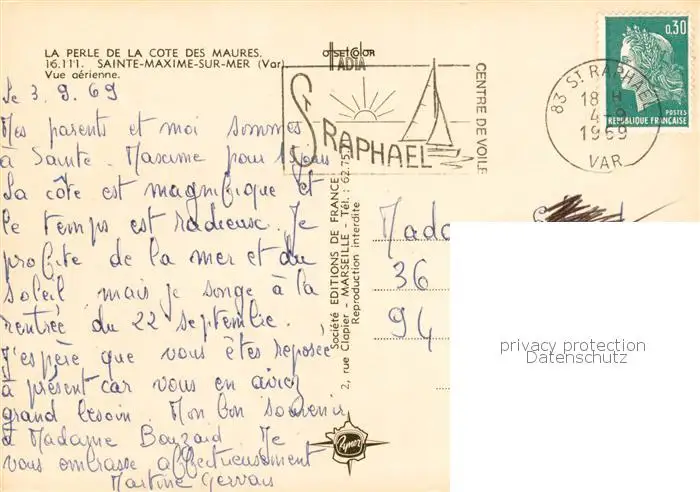 LA PERLE DE LA COTE DES MAURES.
16.111. SAINTE-MAXIME-SUR-MER (Var)
Vue aérienne.
OffsetColor
IADIA
Le 3.9.69
Mes parents et moi sommes
à Sainte. Maxime pour 15 jours
La côte est magnifique et
le temps est radieux. Je
profite de la mer et du
soleil mais je songe à la
rentrée du 22 septembre.
J'espère que vous êtes reposée
à présent car vous en aviez
grand besoin. Mon bon souvenir
à Madame Bouzard. Je
vous embrasse affectueusement
Martine Gervais
ST RAPHAEL
CENTRE DE VOILE
83 ST RAPHAEL
18 H
4-9
1969
VAR
0,30
POSTES
REPUBLIQUE FRANÇAISE
Société EDITIONS DE FRANCE
2, rue Clapier - MARSEILLE - Tél. : 62.75.
Reproduction interdite
Mada
36
94
privacy protection
Datenschutz